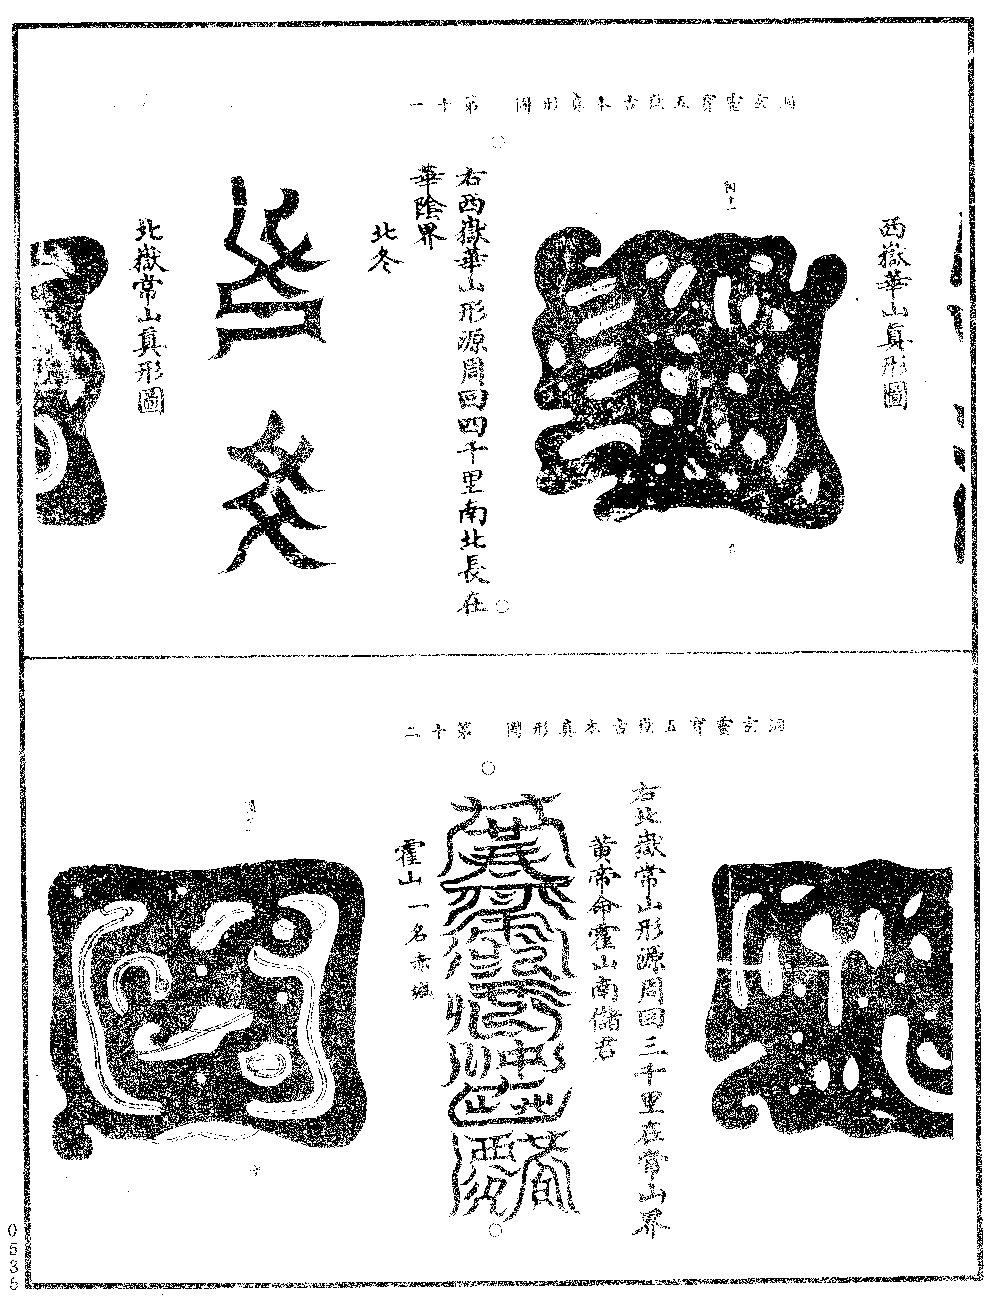 洞玄靈寳五嶽古本真形圖　第十一
西嶽華山真形圖
右西嶽華山形源周回四千里南北長在
華陰界
北冬
北嶽常山真形圖
洞玄靈寳五嶽古本真形圖　第十二
右北嶽常山形源周回三千里在常山界
黃帝命霍山南儲君
霍山一名赤城